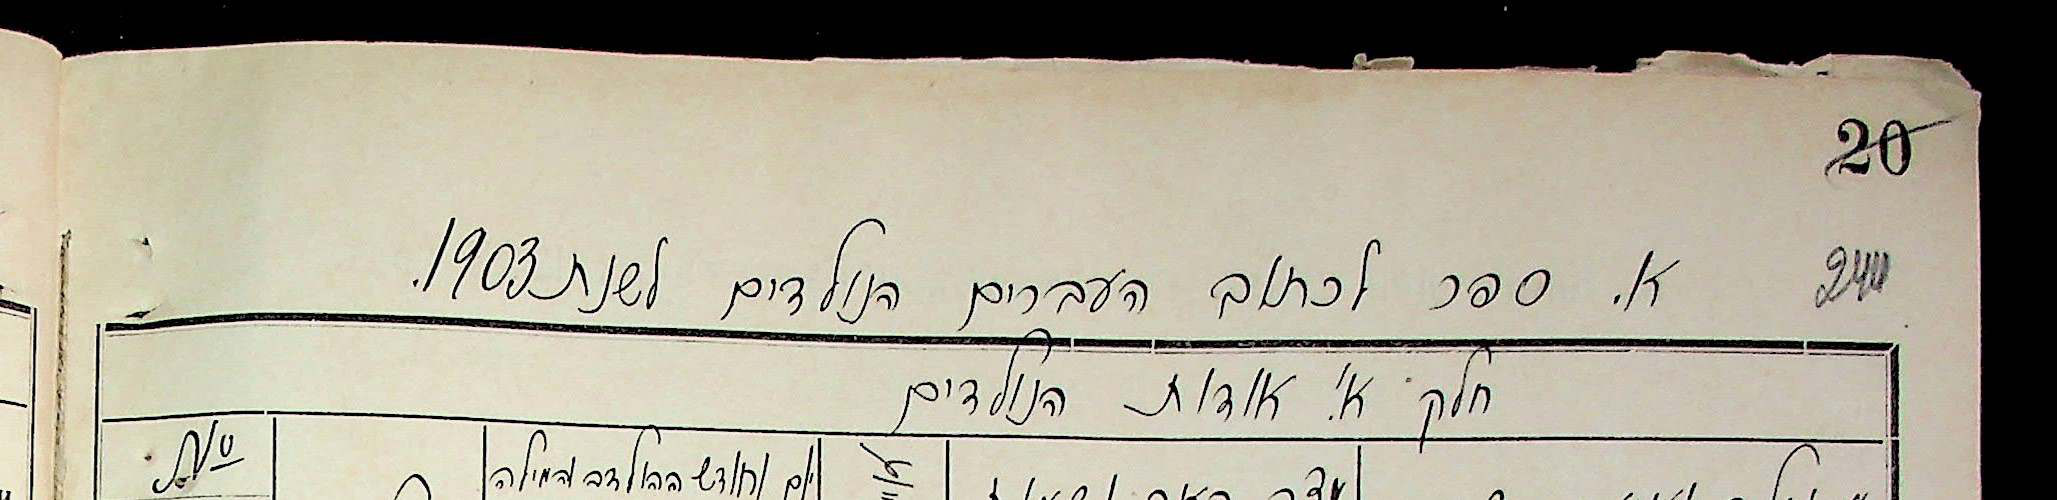 20
244
א. ספר לכתוב העברים הנולדים לשנת 1903.
חלק א'. אודות הנולדים
№
יום וחודש ההולדה והמילה